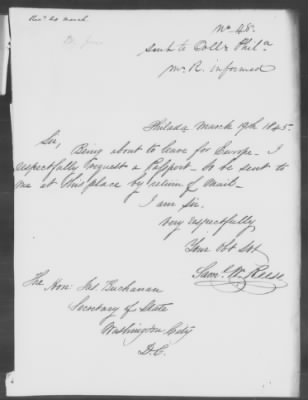 Rec. 20 March
No 48.
Sent to Coll Phila
Mr. R. informed
Philada March 19th 1845.
Sir, Being about to leave for Europe - I
respectfully request a Passport - to be sent to
me at this place by return of Mail -
I am Sir,
Very respectfully
Your Obt Svt
Saml W. Reese
The Hon: Jas Buchanan
Secretary of State
Washington City
D.C.